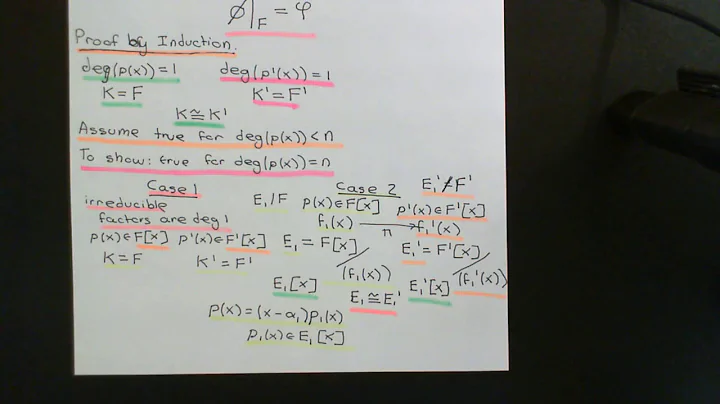 ϕ|_F = φ
Proof by Induction.
deg(p(x))=1 deg(p'(x))=1
K=F K'=F'
K≅K'
Assume true for deg(p(x))<n
To show: true for deg(p(x))=n
Case 1
irreducible
factors are deg 1
p(x)∈F[x] p'(x)∈F'[x]
K=F K'=F'
Case 2
E₁/F E₁'/F'
p(x)∈F[x] p'(x)∈F'[x]
f₁(x) → f₁'(x)
η
E₁=F[x]/(f₁(x)) E₁'=F'[x]/(f₁'(x))
E₁[x] E₁≅E₁' E₁'[x]
p(x)=(x-α₁)p₁(x)
p₁(x)∈E₁[x]